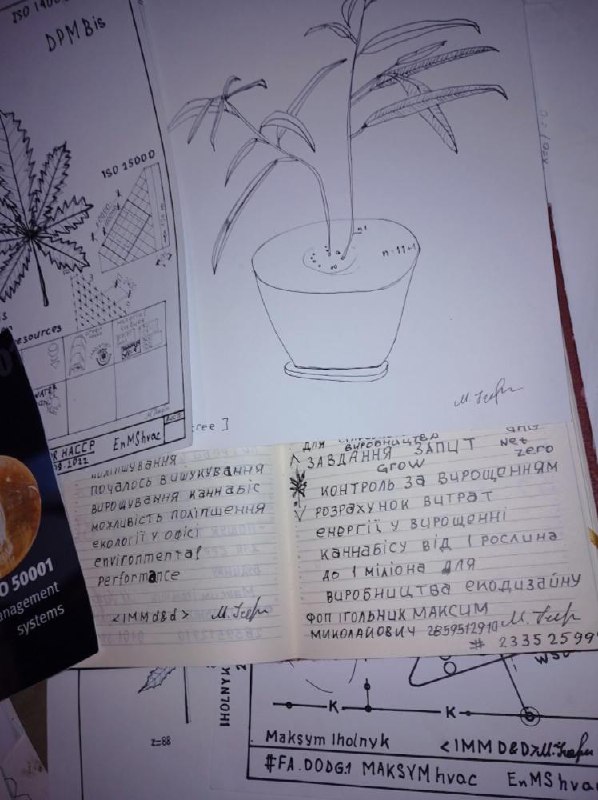 ISO 1400
DPMBis
ISO 15000
n-11+1
esources
WATER
HACCP
.08.2022
EnMShvac
ree ]
М. Ігор
поліпшування
почалось вишукування
вирощування каннабіс
можливість поліпшення
екології у офісі
environmental
performance
<IMMd&d>
для виробництва
ЗАВДАННЯ ЗАПИТ
Net
zero
Grow
контроль за вирощенням
розрахунок витрат
енергії у вирощенні
каннабісу від 1 рослина
до 1 міліона для
виробництва екодизайну
ФОП ІГОЛЬНИК МАКСИМ
МИКОЛАЙОВИЧ 2859512910
# 233525999
O 50001
anagement
systems
z=88
IHOLNYK
K
K
b
Maksym Iholnyk
<IMM D&D>
#FA.DODG1 MAKSYM hvac EnMShvac